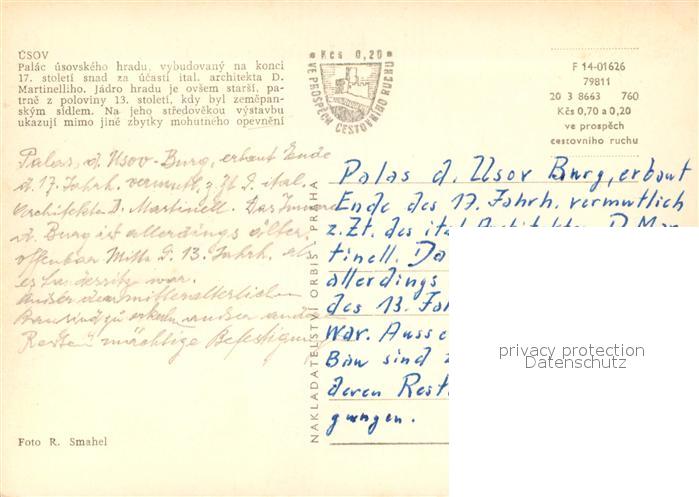 ÚSOV
Palác úsovského hradu, vybudovaný na konci
17. století snad za účasti ital. architekta D.
Martinelliho. Jádro hradu je ovšem starší, pa-
trně z poloviny 13. století, kdy byl zeměpan-
ským sídlem. Na jeho středověkou výstavbu
ukazují mimo jiné zbytky mohutného opevnění
Kčs 0,20
VE PROSPĚCH CESTOVNÍHO RUCHU
F 14-01626
79811
20 3 8663 760
Kčs 0,70 a 0,20
ve prospěch
cestovního ruchu
Palas d. Usov-Burg, erbaut Ende
d. 17. Jahrh. vermutl. z. Zt. d. ital.
Architekten D. Martinell. Das Innere
d. Burg ist allerdings älter.
offenbar Mitte d. 13. Jahrh. als
es war.
Ausser dem mittelalterlichen
Bau sind zu erkennen ausser
Resten mächtige Befestigung
NAKLADATELSTVÍ ORBIS, PRAHA
Palas d. Usov Burg, erbaut
Ende des 17. Jahrh. vermutlich
z. Zt. des ital. Architekten D. Mar-
tinell. Da
allerdings
des 13. Jah
war. Ausse
Bau sind z
deren Rest
gungen.
privacy protection
Datenschutz
Foto R. Smahel